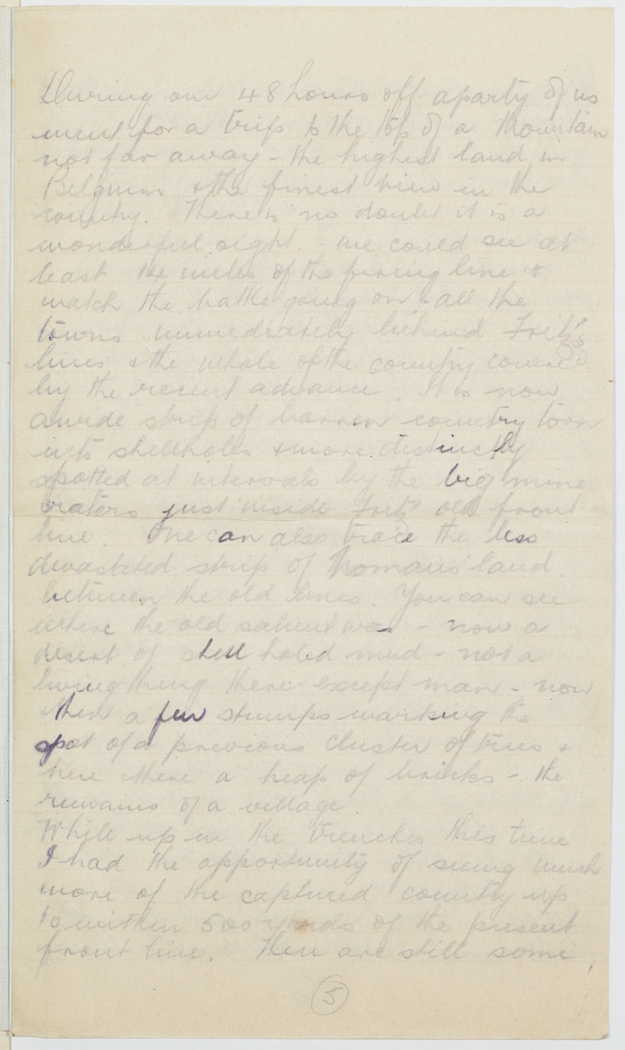 During our 48 hours off a party of us
went for a trip to the top of a mountain
not far away - the highest land in
Belgium & the finest view in the
country. There is no doubt it is a
wonderful sight. - we could see at
least 14 miles of the firing line &
watch the battle going on & all the
towns immediately behind Fritz's
lines & the whole of the country covered
by the recent advance. It is now
a wide strip of barren country torn
into shellholes & more distinctly
spotted at intervals by the big mine
craters just inside Fritz' old front
line. One can also trace the less
devasteted strip of Nomans land
between the old lines. You can see
where the old salient was - now a
desert of shell holed mud - not a
living thing there except man - now
& then a few stumps marking the
spot of a previous cluster of trees &
here & there a heap of bricks - the
remains of a village.
While up in the trenches this time
I had the opportunity of seeing much
more of the captured country up
to within 500 yards of the present
front line. There are still some
5